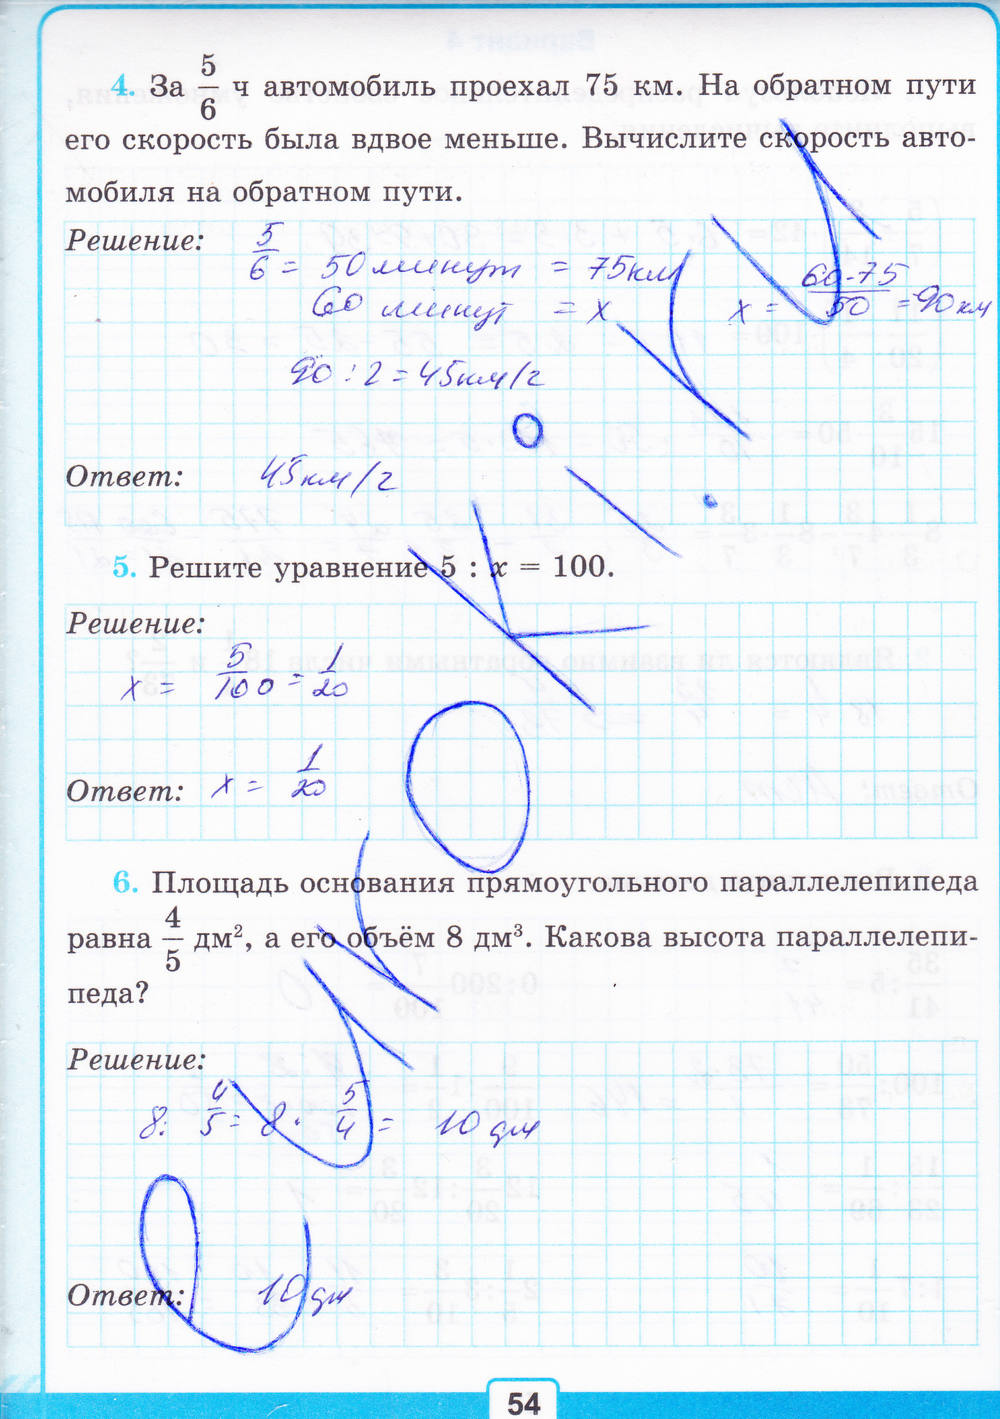 4. За 5/6 ч автомобиль проехал 75 км. На обратном пути
его скорость была вдвое меньше. Вычислите скорость авто-
мобиля на обратном пути.
Решение: 5/6 = 50 минут = 75км
60 минут = x x = 60·75/50 = 90 км
90 : 2 = 45км/г
Ответ: 45км/г
5. Решите уравнение 5 : x = 100.
Решение:
x = 5/100 = 1/20
Ответ: x = 1/20
6. Площадь основания прямоугольного параллелепипеда
равна 4/5 дм², а его объём 8 дм³. Какова высота параллелепи-
педа?
Решение:
8 : 4/5 = 8 · 5/4 = 10 дм
Ответ: 10 дм
54